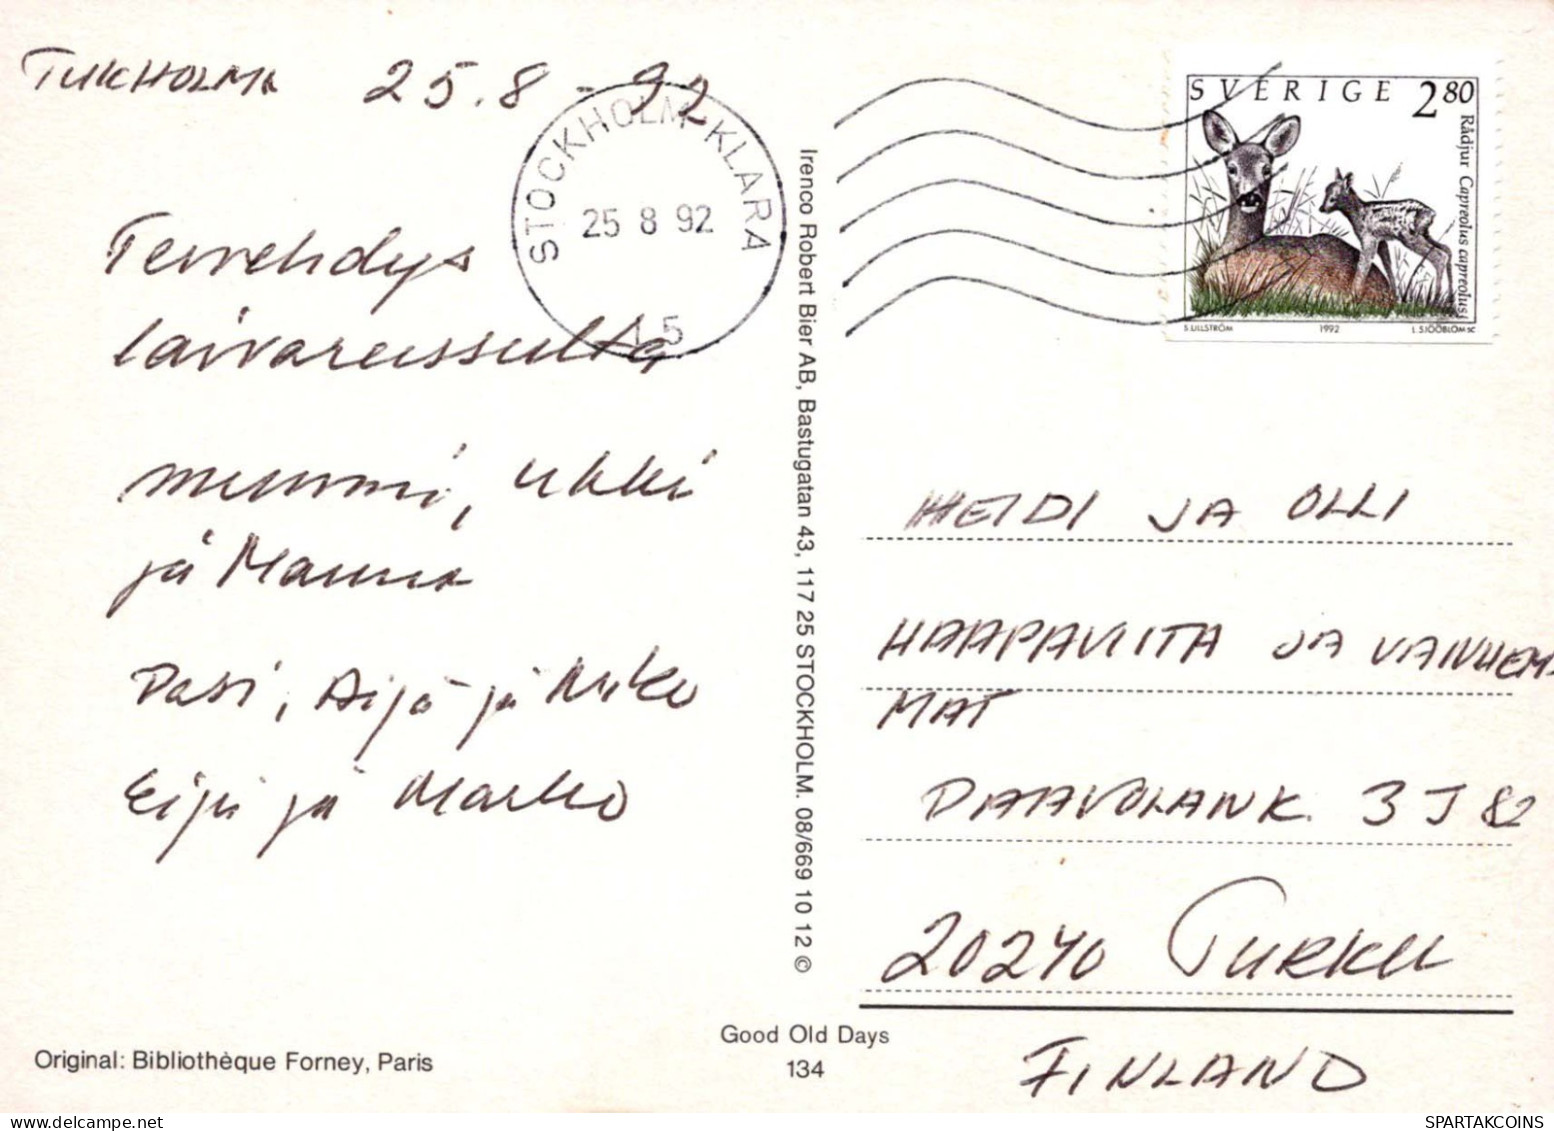 TUKHOLMA 25.8 - 92
STOCKHOLM-KLARA
25 8 92
15
Tervehdys
laivareissulta
mummi, ukki
ja Hanna
Pasi, Aija ja Niko
Eija ja Marko
Irenco Robert Bier AB, Bastugatan 43, 117 25 STOCKHOLM. 08/669 10 12 ©
SVERIGE 2 80
Rådjur Capreolus capreolus
S.ULLSTRÖM 1992 L.SJÖÖBLOM SC
HEIDI JA OLLI
HAAPAVIITA JA VANHEM-
MAT
PAAVOLANK. 3 J 82
20240 TURKU
FINLAND
Good Old Days
134
Original: Bibliothèque Forney, Paris
SPARTAKCOINS